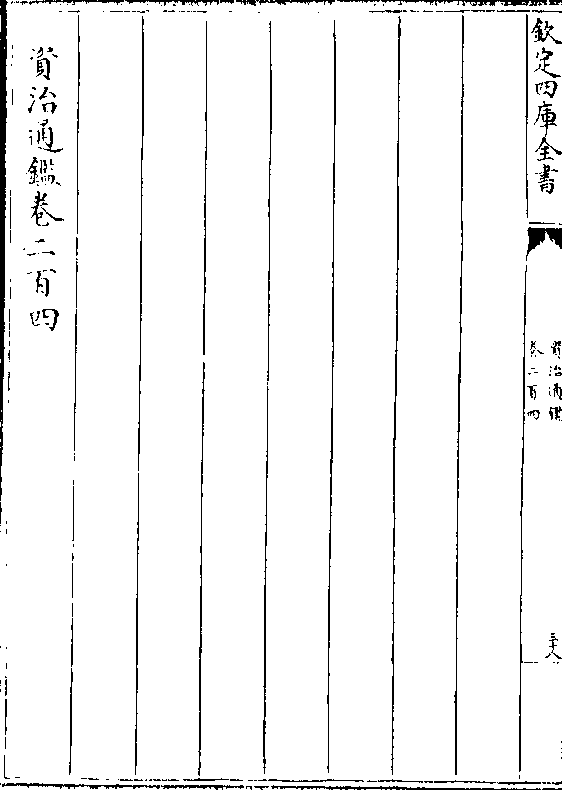 欽定四庫全書
資治通鑑
卷二百四
三十八
資治通鑑卷二百四